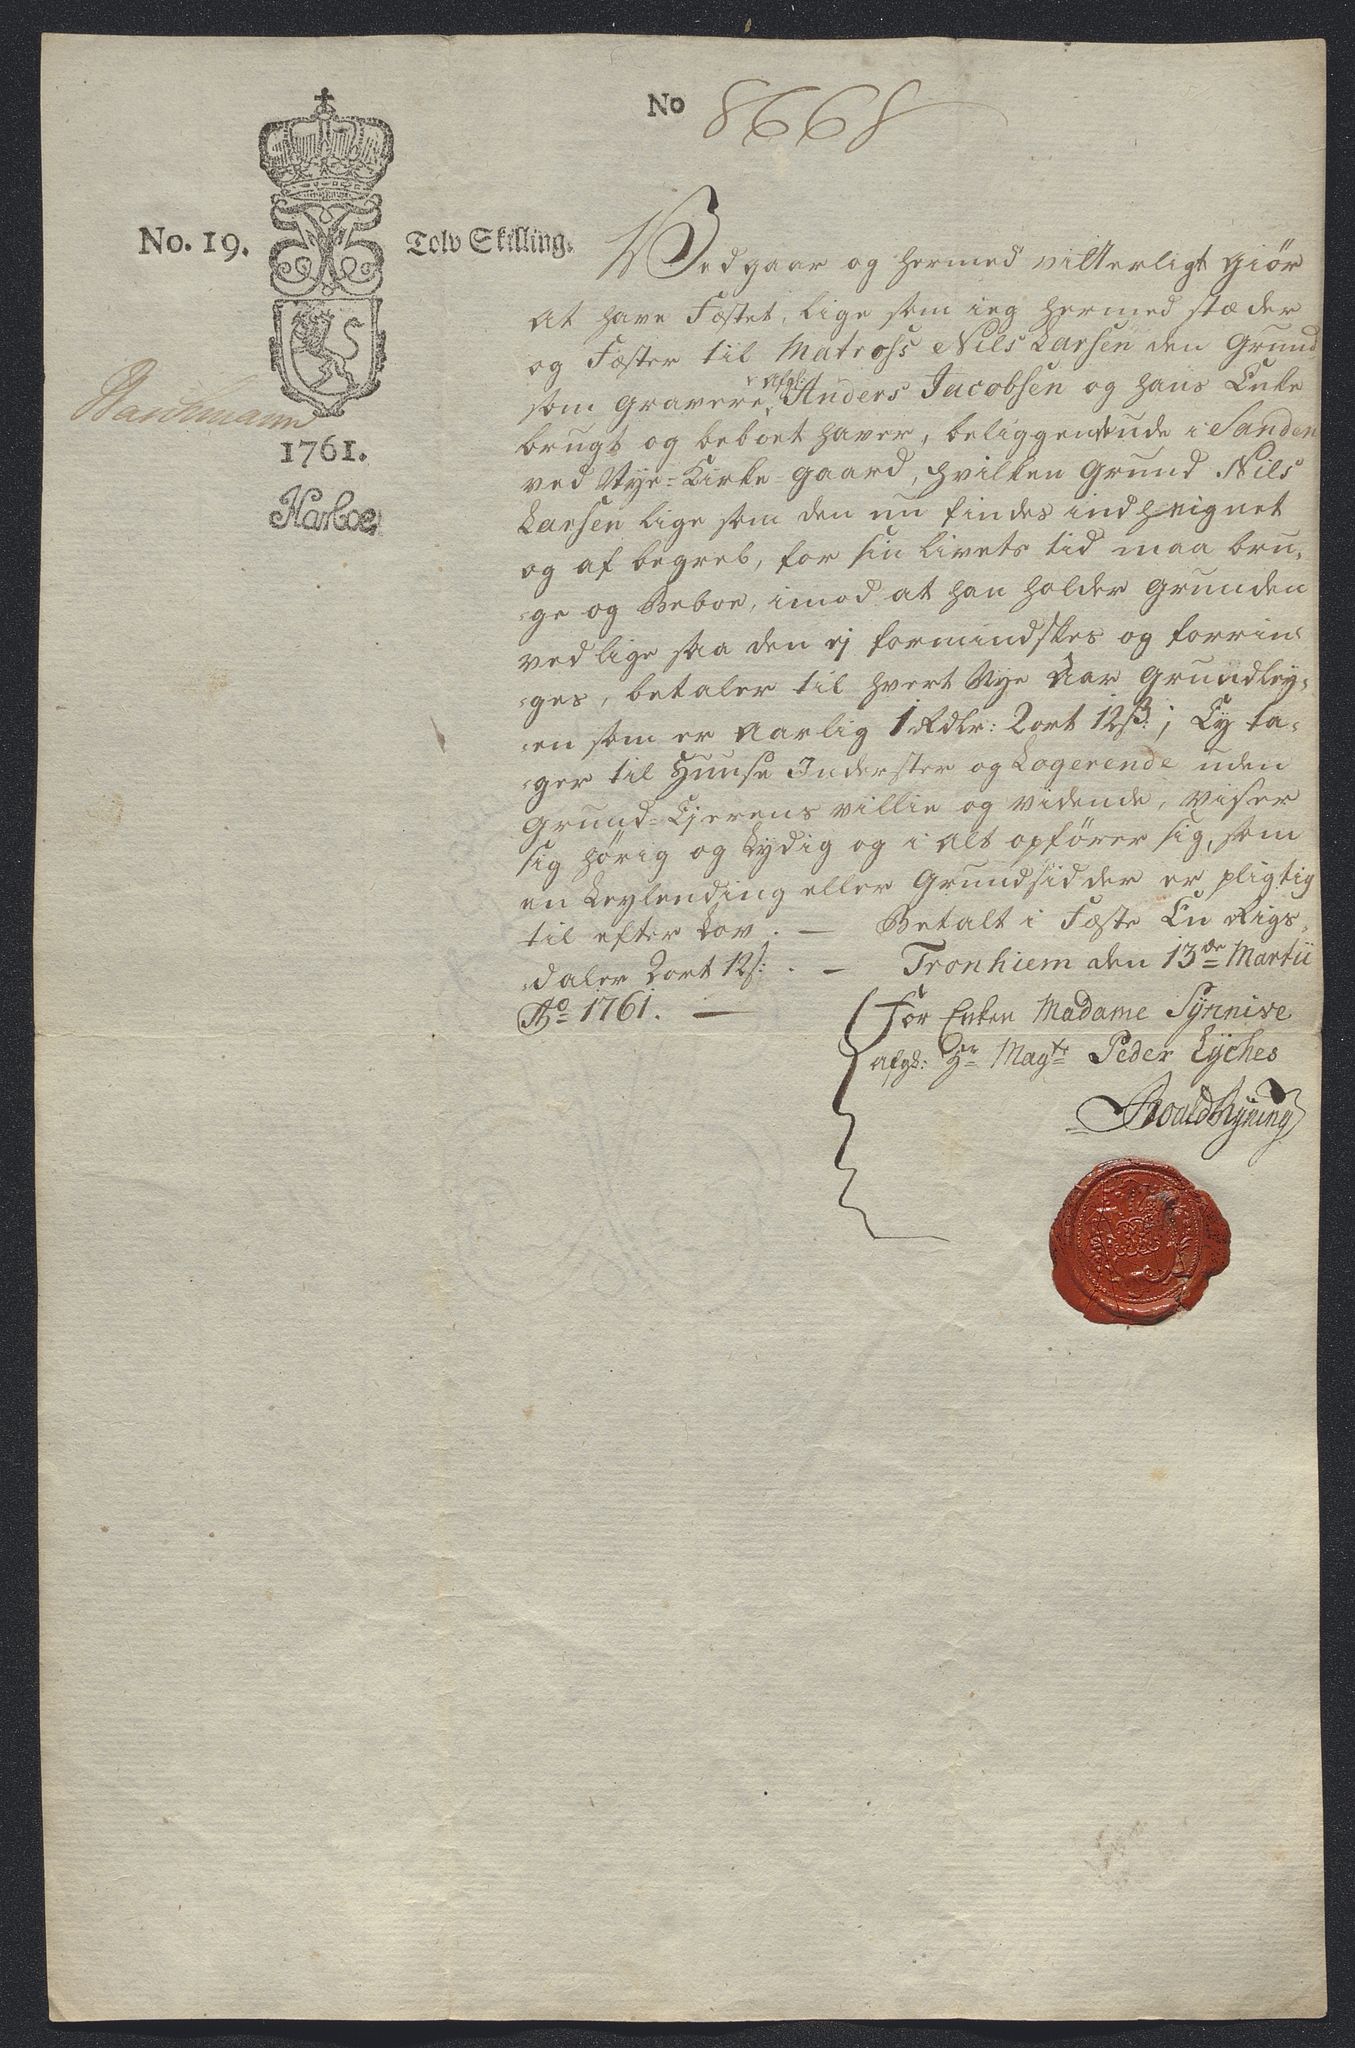 No 8668
No. 19.
Tolv Skilling.
1761.
Harboe
Vedgaar og hermed vitterligt giör
at have Fæstet, lige som ieg hermed stæder
og Fæster til Matrofs Nils Larsen den Grund
som Gravere afgl: Anders Jacobsen og hans Enke
brugt og beboet haver, beliggende ude i Sanden
ved Nye-Kirke-gaard, hvilken Grund Nils
Larsen lige som den nu findes indheignet
og af begreb, for sin livets tid maa bru-
-ge og beboe, imod at han holder Grunden
ved lige saa den ej formindskes og forrin-
-ges, betaler til hvert Nye Aar Grundley-
-en som er Aarlig 1 Rdlr: 2 ort 12 ß:; Ey ta-
-ger til Huuse Inderster og Logerende uden
Grund-Ejerens villie og vidende, viser
sig hörig og Lydig og i alt opförer sig, som
en Leylending eller Grundsidder er pligtig
til efter Lov. — Betalt i Fæste En Rigs-
-daler 2 ort 12 s: . — Tronhiem den 13de Martii
Ao 1761. —
For Enken Madame Synnive
afgl: Hr Magtr Peder Lyches
Roald Nyning